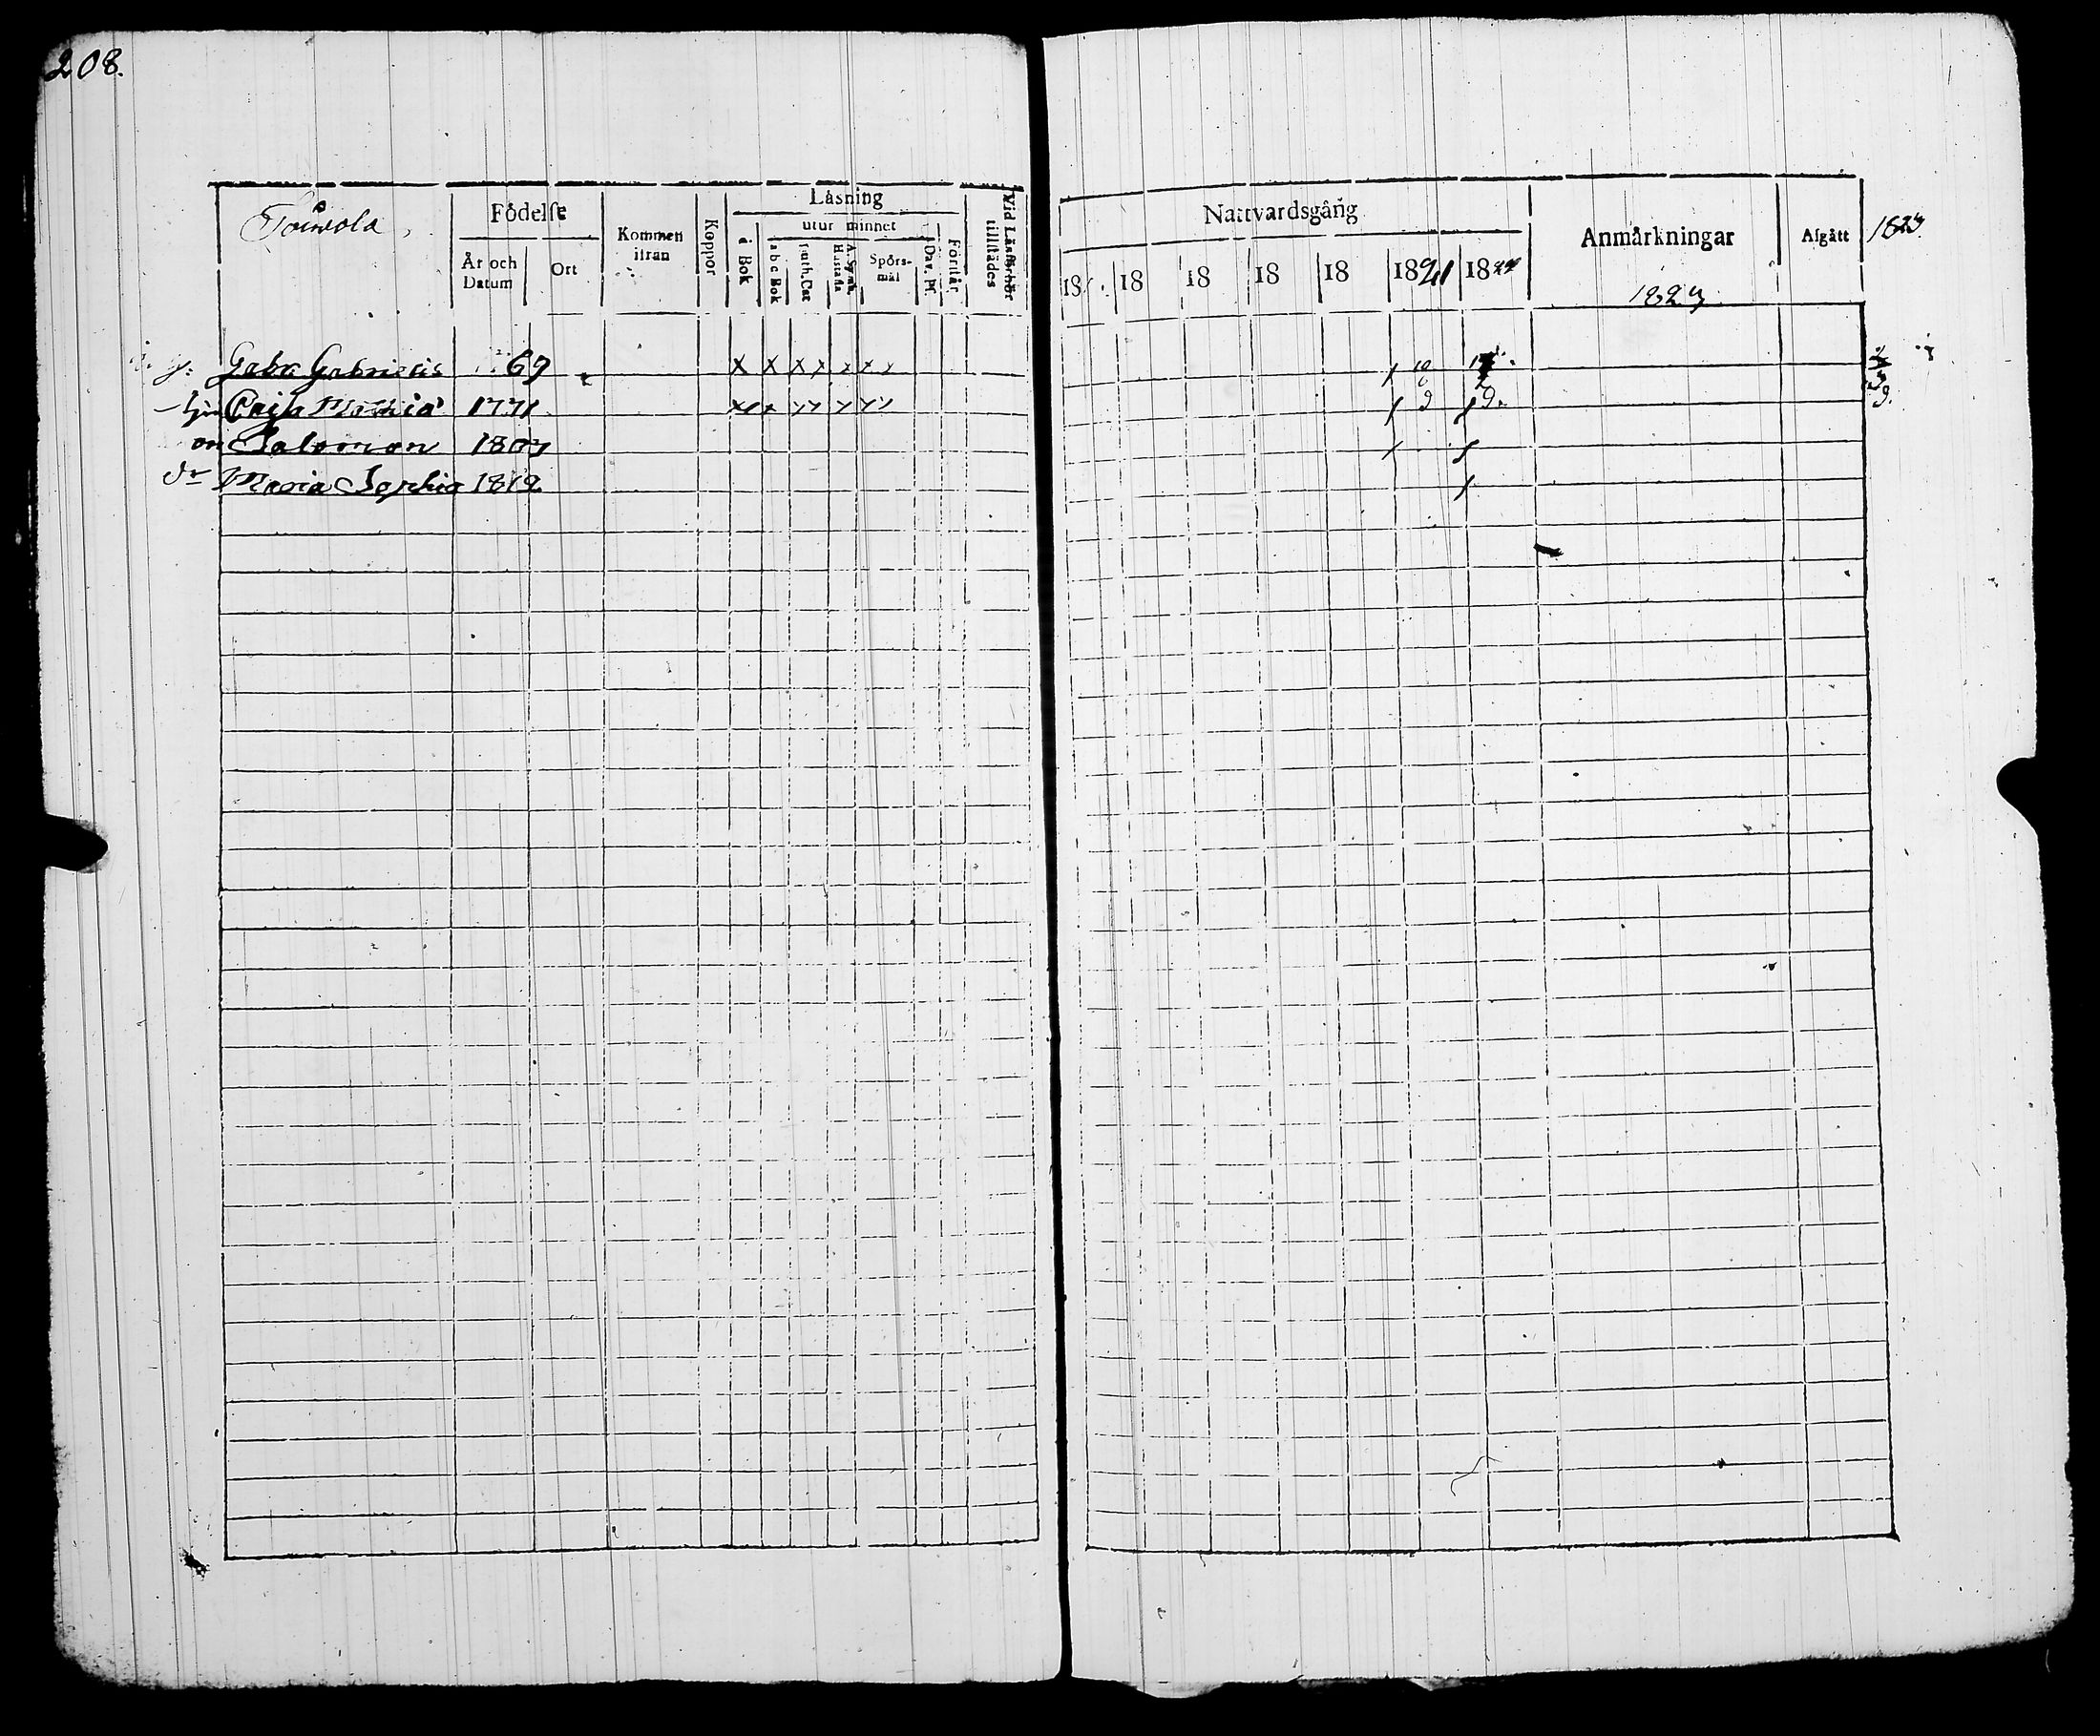 208.
Toiwola
Födelse
År och Datum
Ort
Kommen ifrån
Koppor
Läsning
utur minnet
i Bok
a b c Bok
Luth. Cat
A. Symb. Hustafla
Spörs-mål
Dav. Ps.
Förstår
Vid Läsförhör tillstädes
Nattvardsgång
18 18 18 18 18 1821 1822
Anmärkningar
1823
Afgått
1823.
Gabr Gabrielis 69 x x x x x x x
Caisa Mathia 1771
on Salomon 1803
dr Maria Sophia 1812